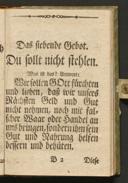 Das siebende Gebot.
Du sollt nicht stehlen.
Was ist das? Antwort:
Wir sollen GOtt fürchten
und lieben, daß wir unsers
Nächsten Geld und Gut
nicht nehmen, noch mit fal-
scher Waar oder Handel an
uns bringen, sondern ihm sein
Gut und Nahrung helfen
bessern und behüten.
B 2 Diese